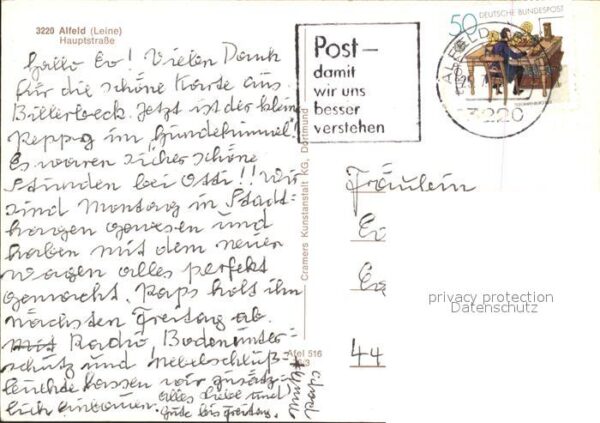 3220 Alfeld (Leine)
Hauptstraße
Hallo Ev! Vielen Dank
für die schöne Karte aus
Billerbeck. Jetzt ist der kleine
Peppy im Hundehimmel!
Es waren sicher schöne
Stunden bei Otti!! Wir
sind Montag in Stadt-
hagen gewesen und
haben mit dem neuen
Wagen alles perfekt
gemacht. Paps holt ihn
nächsten Freitag ab.
Radio, Bodenunter-
schutz und Nebelschluß-
leuchte lassen wir zusätz-
lich einbauen. alles Liebe und
Gute bis Freitag.
Cramers Kunstanstalt KG, Dortmund
Afel 516
Post –
damit
wir uns
besser
verstehen
50 DEUTSCHE BUNDESPOST
ALFELD
3220
Fräulein
Ev
44
privacy protection
Datenschutz